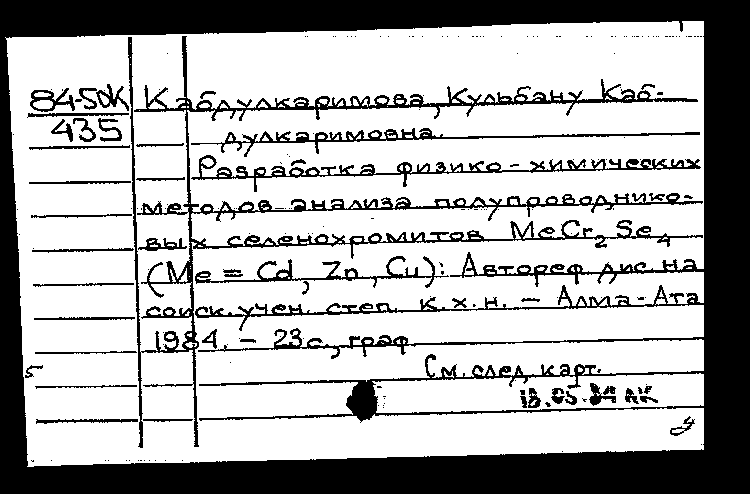 84-5ДК Кабдулкаримова, Кульбану Каб-
435 дулкаримовна.
Разработка физико-химических
методов анализа полупроводнико-
вых селенохромитов MeCr2Se4
(Me = Cd, Zn, Cu): Автореф. дис. на
соиск. учен. степ. к.х.н. – Алма-Ата
1984. – 23с., граф.
См. след. карт.
5
18.05.84 ЛК